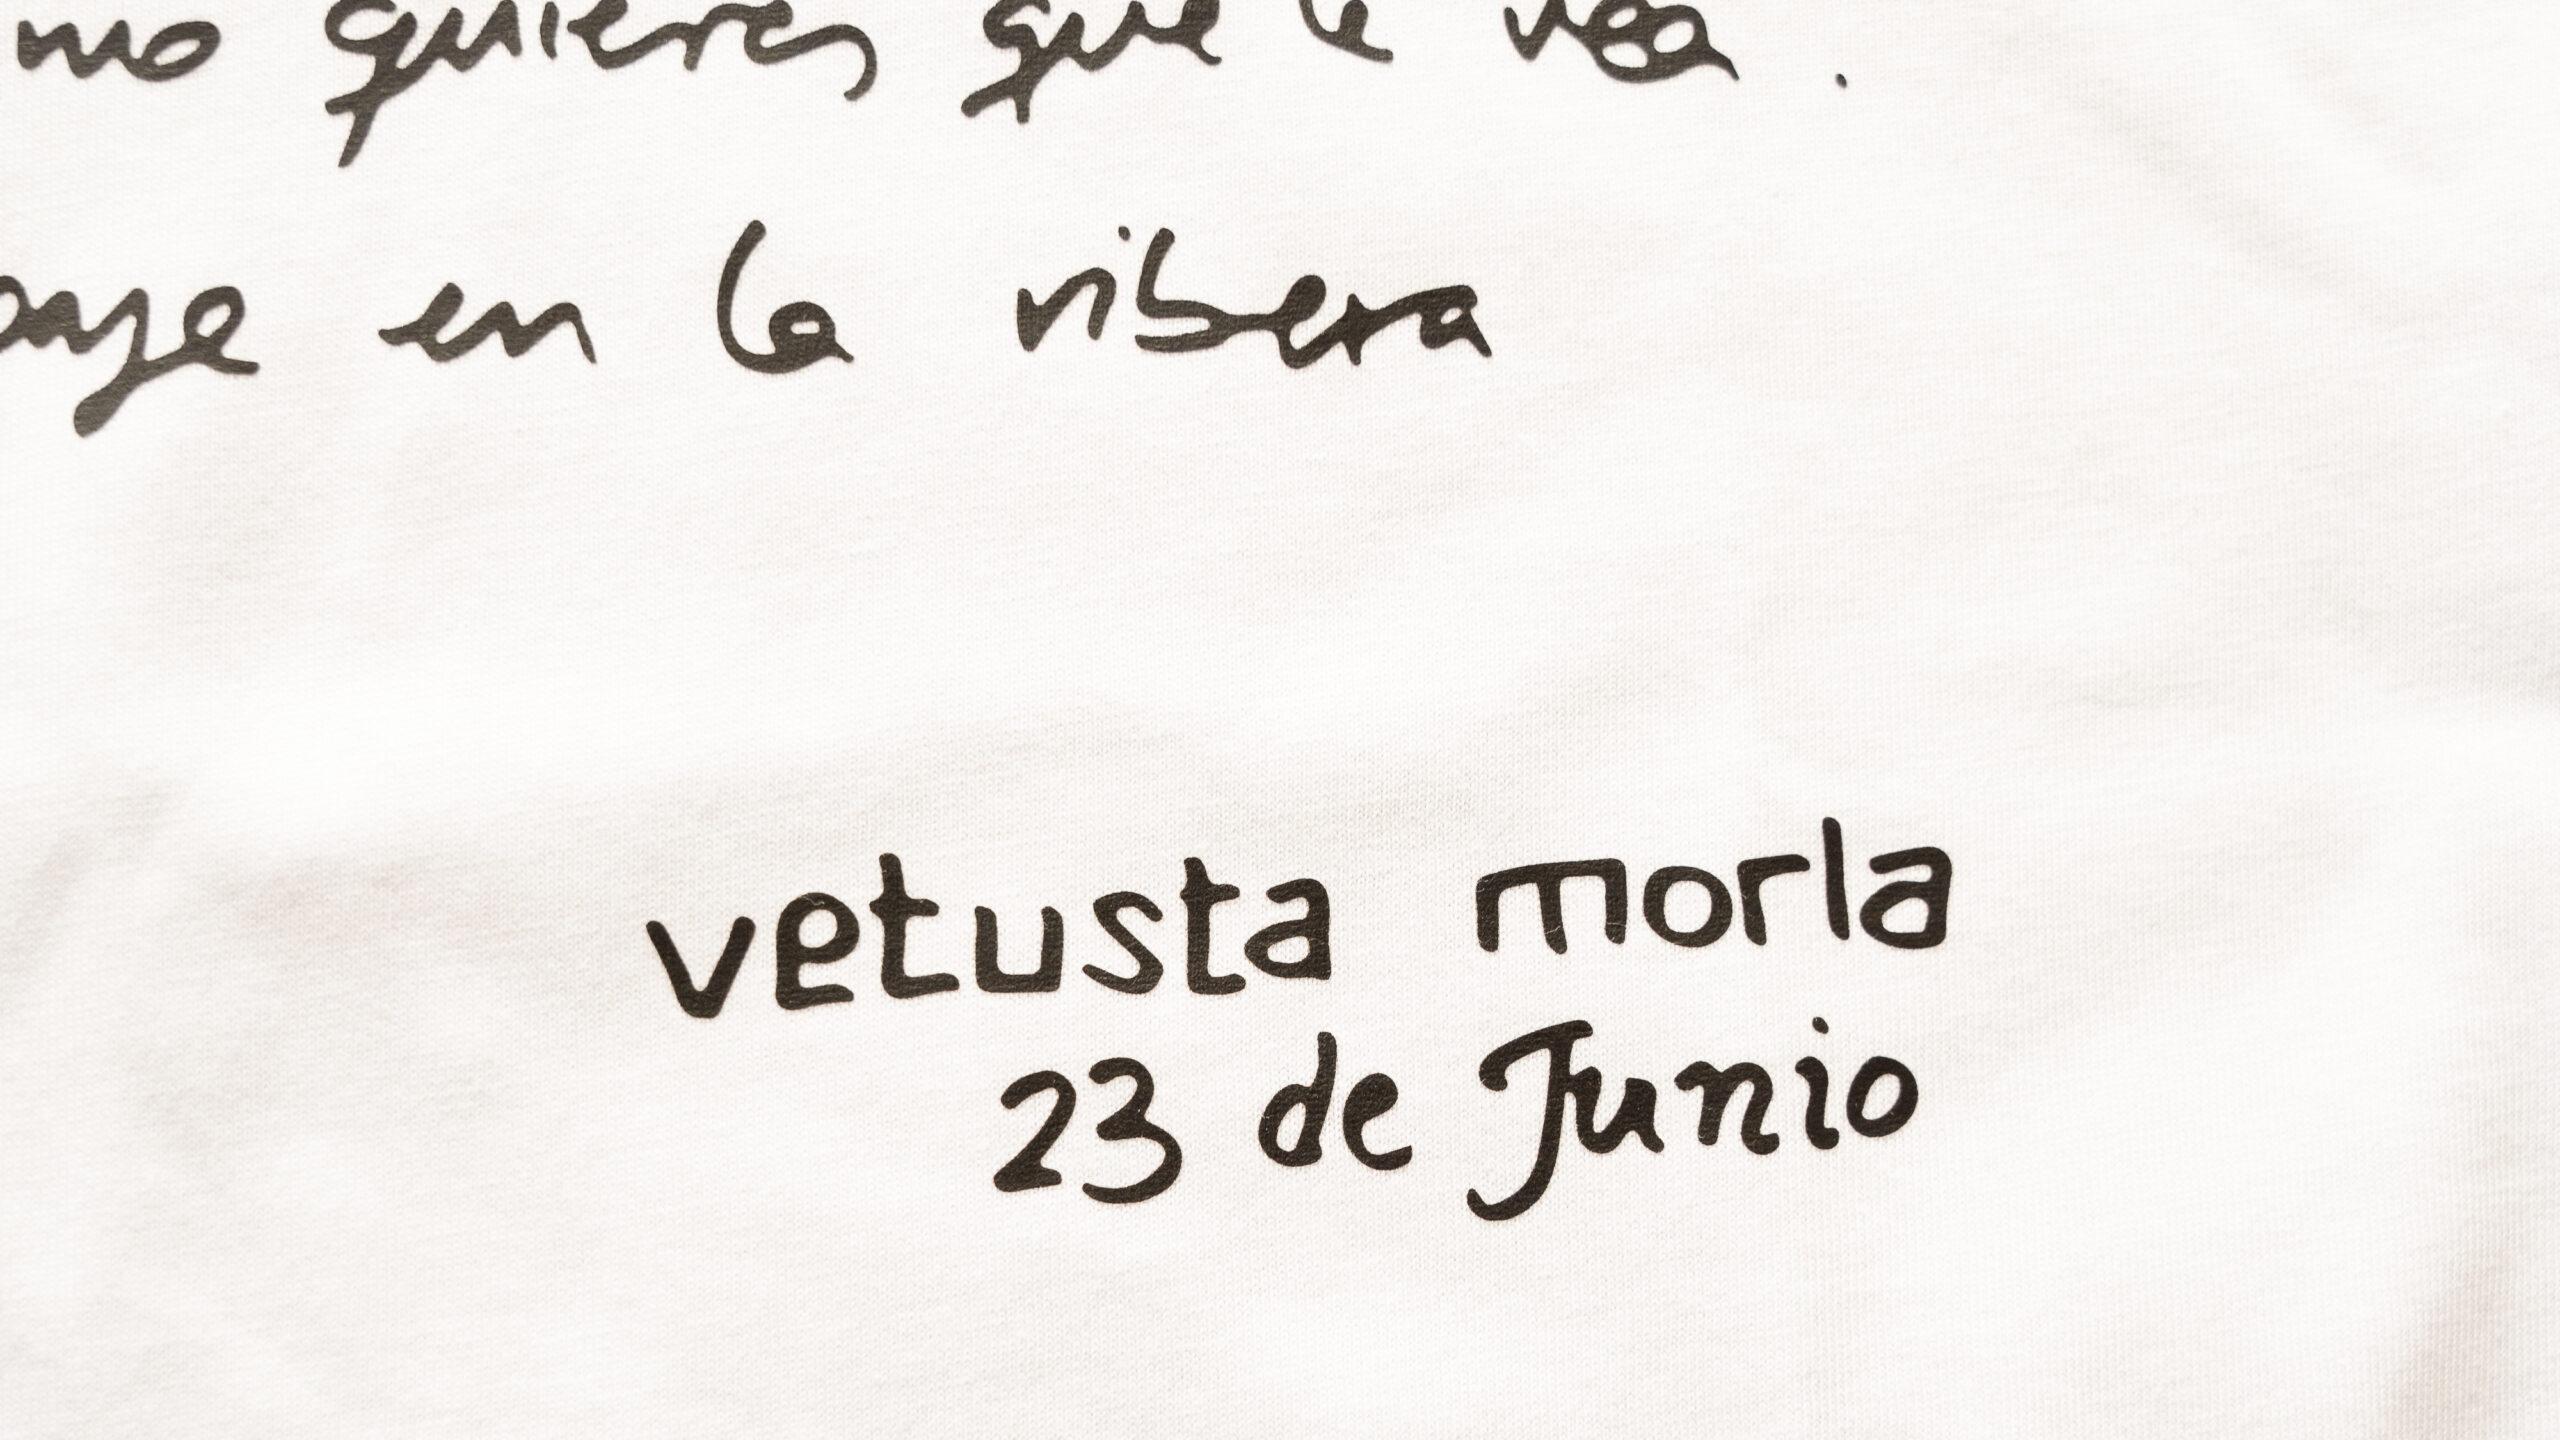 no quieres que te vea.
en la ribera
vetusta morla
23 de Junio